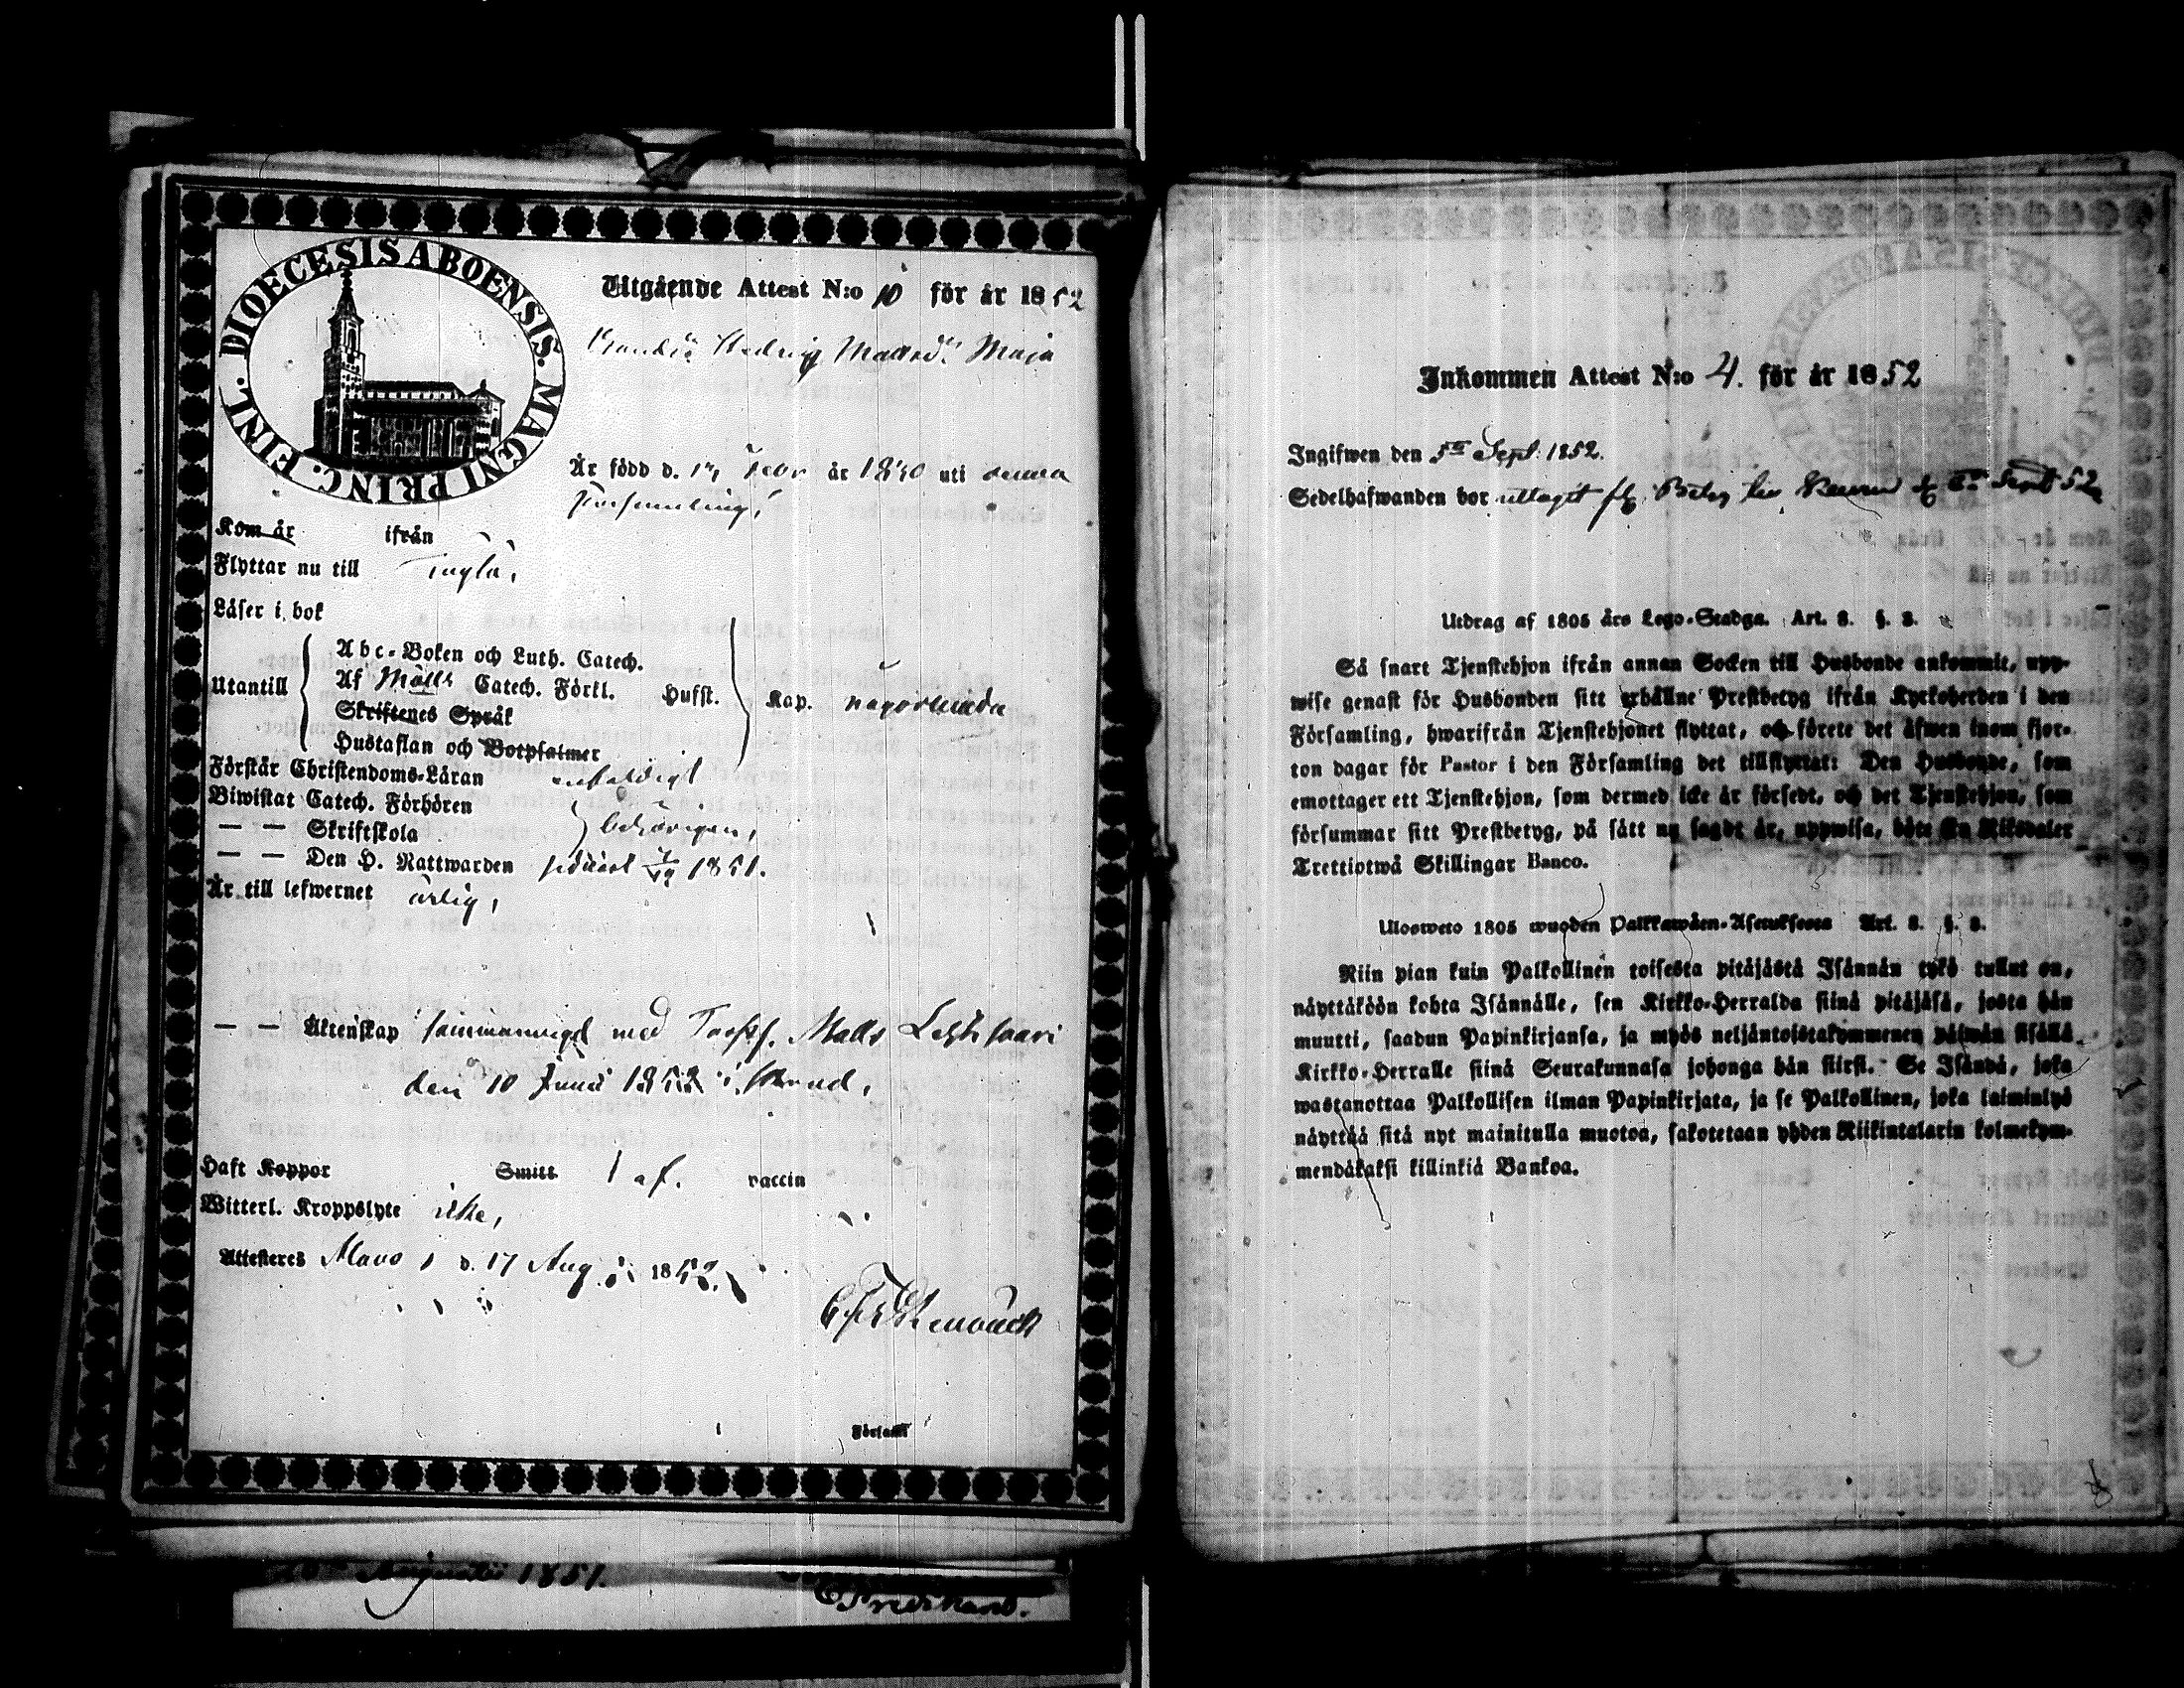 DIOECESIS ABOENSIS. MAGNI PRINC. FINL.
Utgående Attest N:o 10 för år 1852
Hedvig Mattsd:r Maja
Är född d. 17 Febr år 1830 uti denna
församling,
Kom år ifrån
Flyttar nu till
Läser i bok
Utantill
Abc-Boken och Luth. Catech.
Af Möll: Catech. Förkl. Hufst.
Skriftenes Språk
Hustaflan och Botpsalmer
Kap. någorlunda
Förstår Christendoms-Läran enfaldigt
Biwistat Catech. Förhören
— — Skriftskola behörigen,
— — Den H. Nattwarden sednast 1851.
Är till lefwernet ärlig,
— — Äktenskap sammanvigd med Torpf. Matts
den 10 Junii 1852
Haft Koppor Smitt af. vaccin
Witterl. Kroppslyte icke,
Attesteres Alavo d. 17 Aug. 1852.
Församl
Augusti 1851.
Inkommen Attest N:o 4. för år 1852
Ingifwen den 5te Sept. 1852.
Sedelhafwanden bor uttagit Sept 52
Utdrag af 1805 års Lego-Stadga. Art. 8. §. 3.
Så snart Tjenstehjon ifrån annan Socken till Husbonde ankommit, upp-
wise genast för Husbonden sitt erhållne Prestbetyg ifrån Kyrkoherden i den
Församling, hwarifrån Tjenstehjonet flyttat, och förete det äfwen inom fjor-
ton dagar för Pastor i den Församling det tillflyttat: Den Husbonde, som
emottager ett Tjenstehjon, som dermed icke är försedt, och det Tjenstehjon, som
försummar sitt Prestbetyg, på sätt nu sagdt är, uppwisa, böte En Riksdaler
Trettiotwå Skillingar Banco.
Ulosweto 1805 wuoden Palkkawäen-Asetuksesta Art. 8. §. 3.
Niin pian kuin Palkollinen toisesta pitäjästä Isännän tykö tullut on,
näyttäköön kohta Isännälle, sen Kirkko-Herralda siinä pitäjäsä, josta hän
muutti, saadun Papinkirjansa, ja myös neljäntoistakymmenen päiwän sisällä
Kirkko-Herralle siinä Seurakunnasa johonga hän siirsi. Se Isändä, joka
wastanottaa Palkollisen ilman Papinkirjata, ja se Palkollinen, joka laiminlyö
näyttää sitä nyt mainitulla muotoa, sakotetaan yhden Riikintalarin kolmekym-
mendäkaksi killinkiä Bankoa.